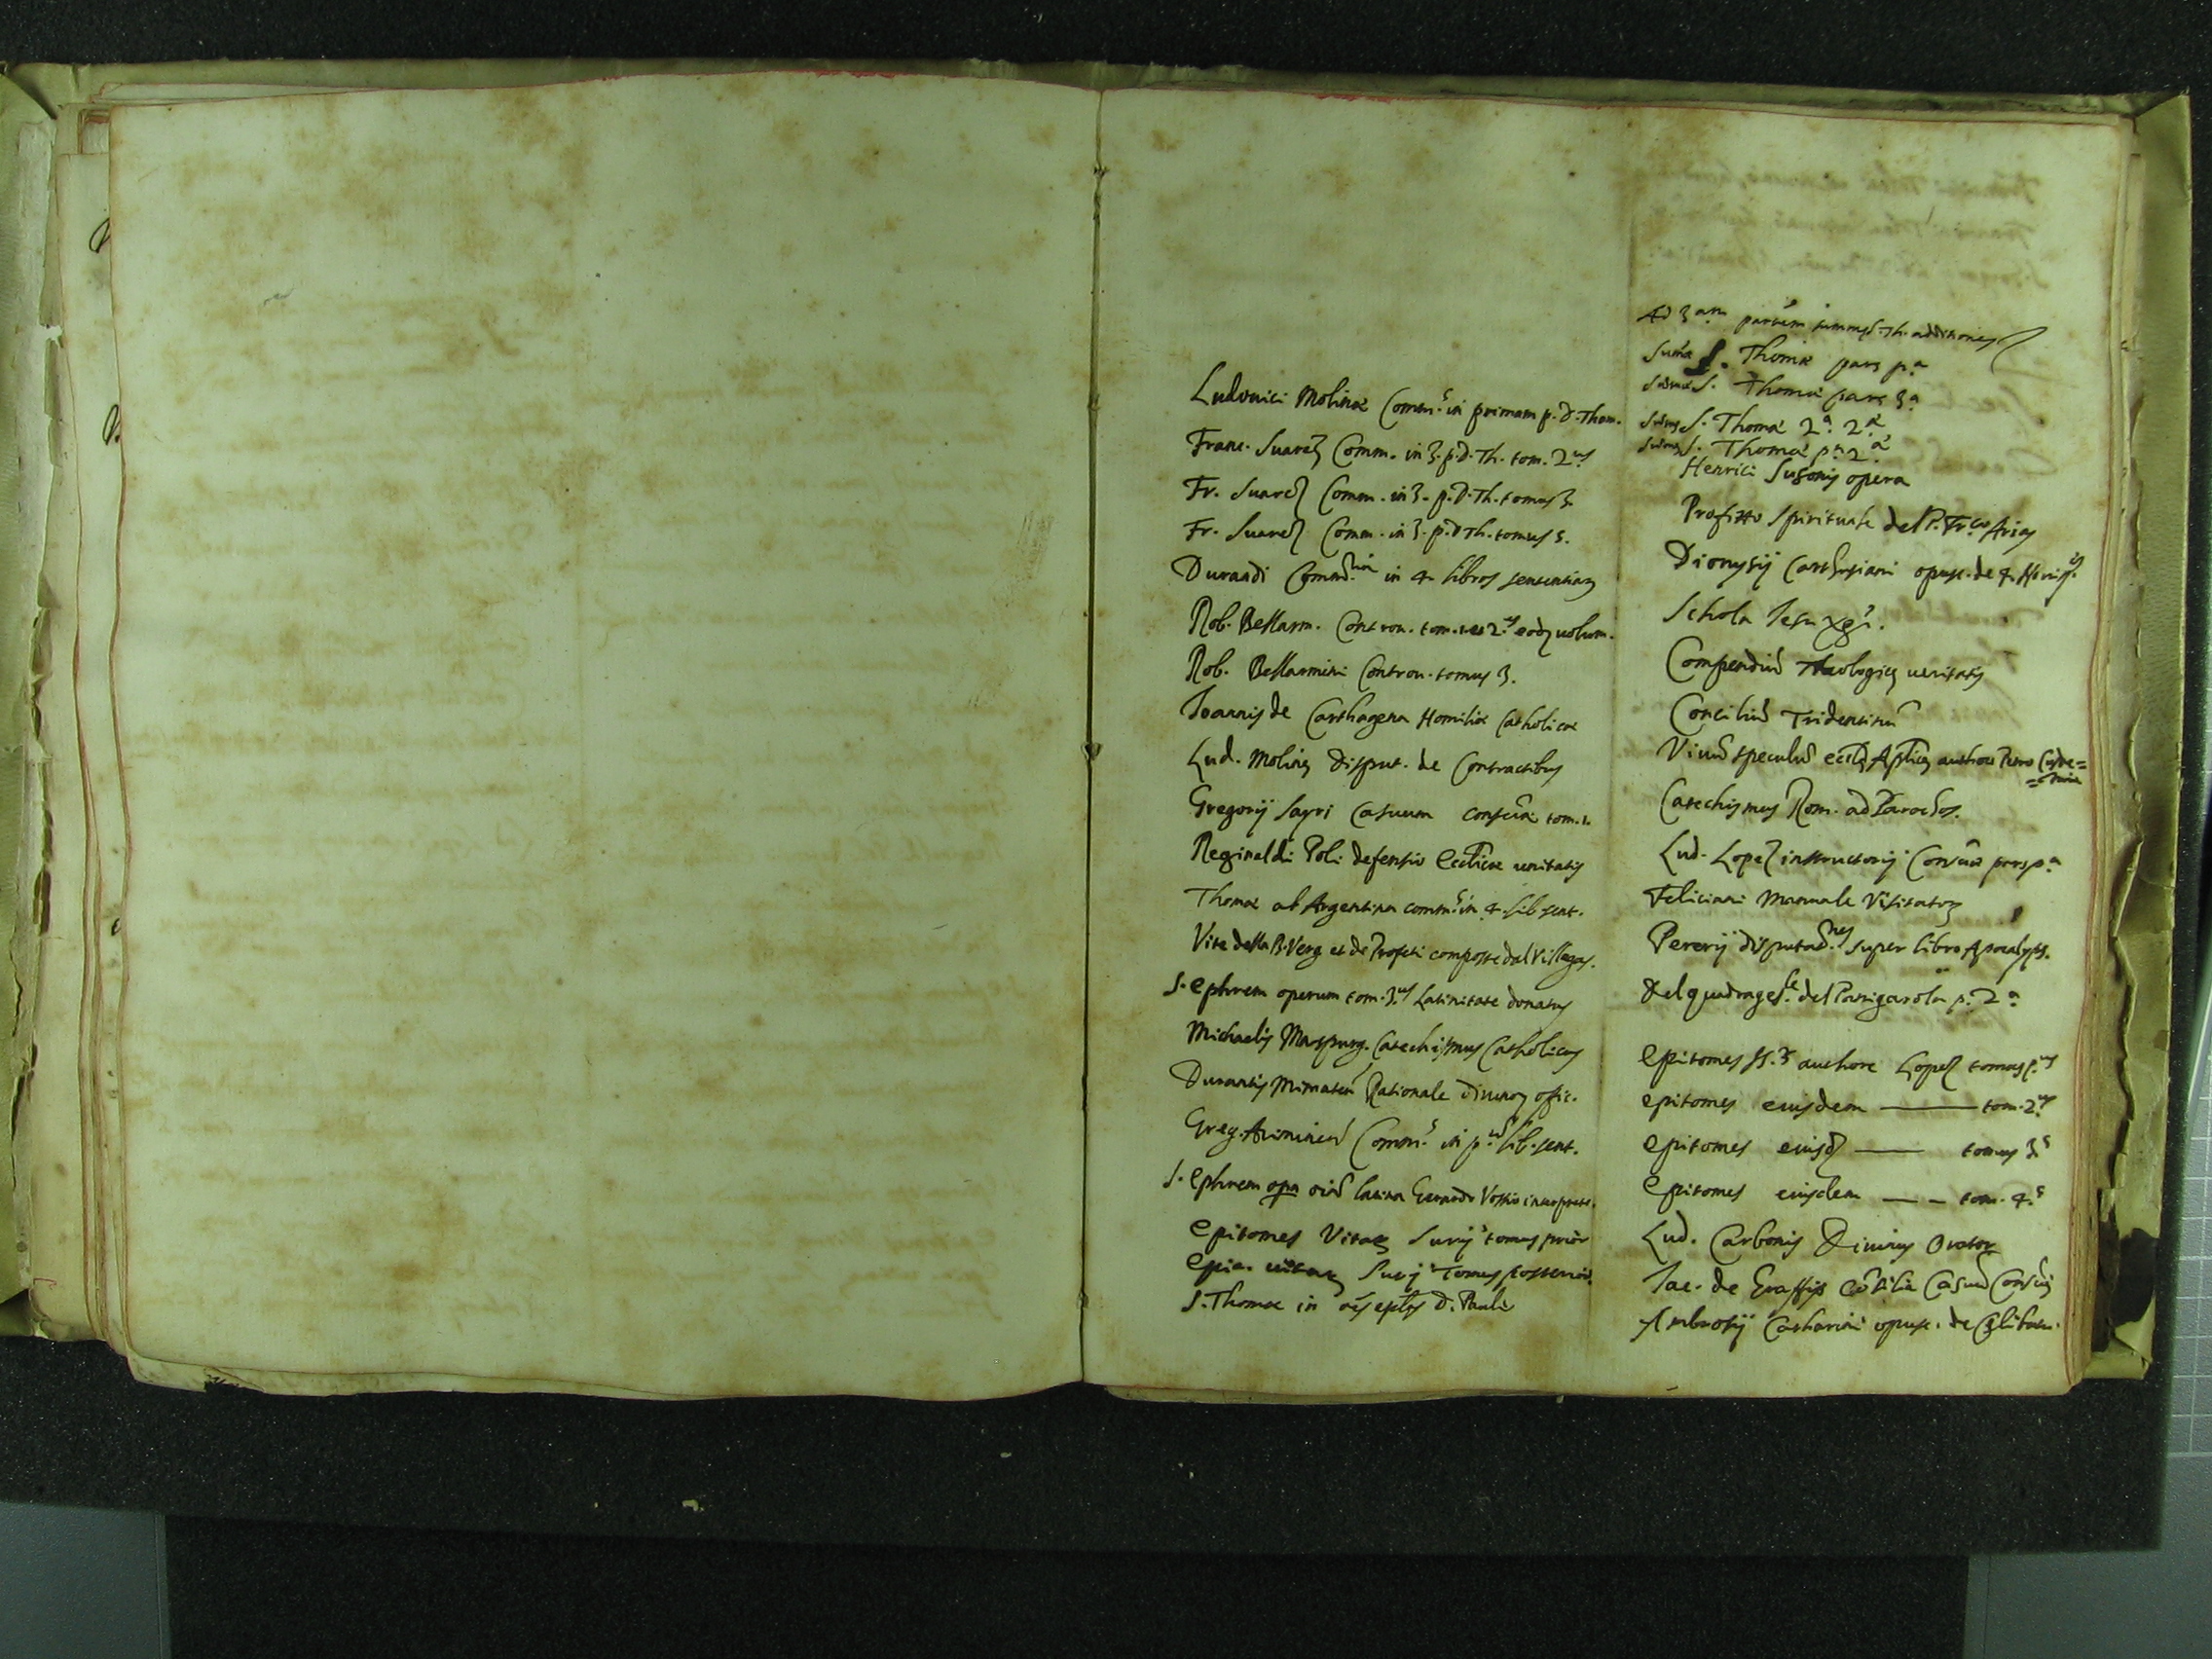 Ludouici Molinæ Comm.s in primam p. D. Thom.
Franc. Suarez Comm. in 3. p. D. Th. tom. 2.us
Fr. Suarez Comm. in 3. p. D. Th. tomus 3.
Fr. Suarez Comm. in 3. p. D Th. tomus 5.
Durandi in 4 libros sententiarum
Rob. Bellarm. Controu. tom. 1 et 2.us eodem uolum.
Rob. Bellarmini Controu. tomus 3.
Ioannis de Carthagena Homiliæ Catholicæ
Lud. Molinæ Disput. de Contractibus
Gregorij Sayri Casuum consciæ tom. 1.
Reginaldi Poli defensio Eccl̃icæ unitatis
Thomæ ab Argentina comm.s in 4. lib. sent.
Vite della B. Verg. et de Profeti composte dal Villegas.
S. Ephrem operum tom. 3.us Latinitate donatus
Michaelis Catechismus Catholicus
Durantis Rationale diuinor offic.
Greg. Ariminen̄ Comm.s in p.um lib. sent.
S. Ephrem opa oĩa latina Gerardo Vossio interprete.
Epitomes Vitarum Surij tomus prior
Epit. uitarum Surij Tomus posterior.
S. Thomæ in oẽs ep̃las D. Pauli
Ad 3.am partem summæ S. Th. additiones
Sum̃a S. Thomæ pars p.a
Summæ S. Thomæ pars 3.a
Summæ S. Thomæ 2.a 2.æ
Summæ S. Thomæ p.a 2.æ
Henrici Susonis opera
Profitto Spirituale del P. Fr.co Arias
Dionysij Carthusiani opusc. de 4. Nouiss.is
Schola Iesu Xp̃i.
Compendiũ Theologicæ ueritatis
Conciliũ Tridentinũ
Viuũ speculũ authore
Catechismus Rom. ad Parochos.
Lud. Lopez instructorij Consciæ pars p.a
Feliciani Manuale Visitator
Pererij disputat.nes super libro Apocalyps.
Del quadrages.le del Panigarola p. 2.a
Epitomes authore Lopez tomus p.us
epitomes eiusdem ——— tom. 2.us
epitomes eiusd —— tomus 3.s
Epitomes eiusdem —— tom. 4.s
Lud. Carbonis Diuinus Orator
Iac. de Graffijs Cõsilia Casuũ Consciæ
Ambrosij Catharini opusc. de Cælibatu.